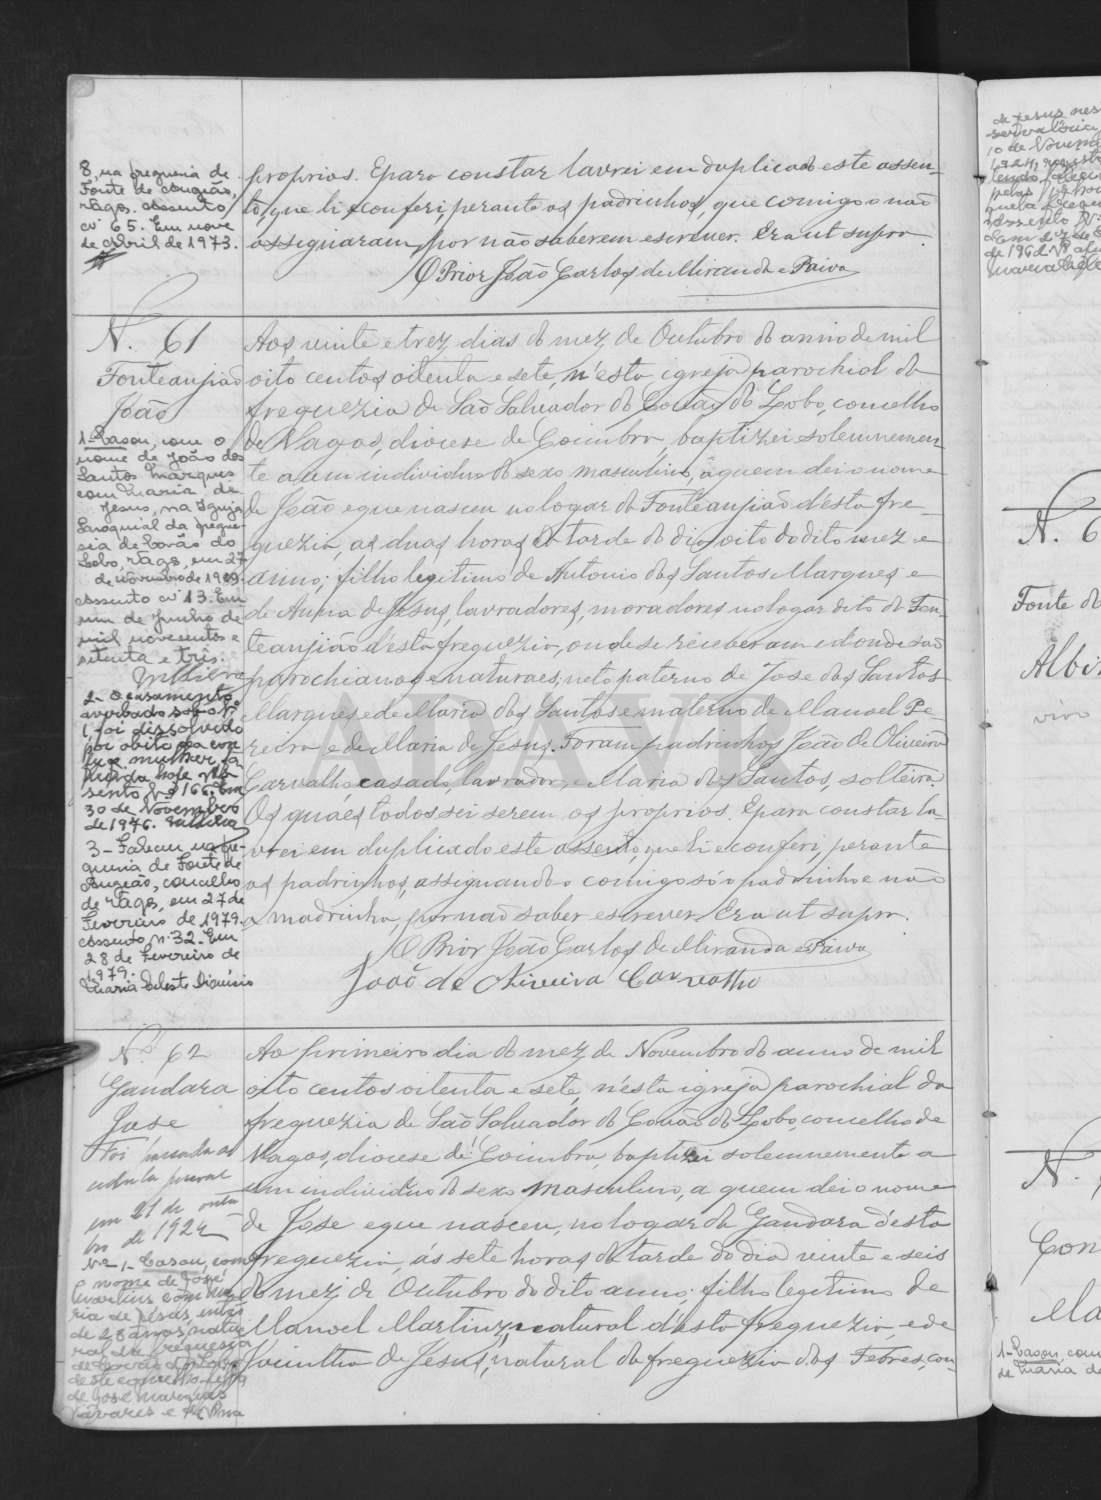 8, na freguesia de
Fonte de Angeão,
Vagos. Assento
nº 65. Em nove
de Abril de 1973.
proprios. E para constar lavrei em duplicado este assen-
to, que li e conferi, perante os padrinhos, que comigo o não
assignaram, por não saberem escrever. Era ut supra.
O Prior João Carlos de Miranda e Paiva
N. 61
Fonteanjião
João
1-Casou, com o
nome de João dos
Santos Marques
com Maria de
Jesus, na Igreja
Paroquial da fregue-
sia de Covão do
Lobo, Vagos, em 27
de novembro de 1909.
Assento nº 13. Em
um de Junho de
mil novecentos e
setenta e três.
2- O casamento
averbado sob o nº
1, foi dissolvido
por óbito da con-
juge mulher, fa-
lecida hoje. As-
sento Nº 166. Em
30 de Novembro
de 1976.
3-Faleceu na fre-
guesia de Fonte de
Angeão, concelho
de Vagos, em 27 de
Fevereiro de 1979.
Assento nº 32. Em
28 de Fevereiro de
1979.
Maria Celeste Dionísio
Aos vinte e trez dias do mez de Outubro do anno de mil
oito centos oitenta e sete, n'esta igreja parochial da
freguezia de São Salvador do Covão do Lobo, concelho
de Vagos, diocese de Coimbra, baptizei solemnemen-
te a um individuo do sexo masculino, a quem dei o nome
de João e que nasceu no logar da Fonteanjião d'esta fre-
guezia, as duas horas da tarde do dia oito do dito mez e
anno; filho legitimo de Antonio dos Santos Marques e
de Anna de Jesus, lavradores, moradores no logar dito da Fon-
teanjião d'esta freguezia, onde se receberam e donde são
parochianos e naturaes, neto paterno de Jose dos Santos
Marques e de Maria dos Santos e materno de Manoel Pe-
reira e de Maria de Jesus. Foram padrinhos João de Oliveira
Carvalho, casado, lavrador, e Maria dos Santos, solteira.
Os quaes todos sei serem os proprios. E para constar la-
vrei em duplicado este assento, que li e conferi, perante
os padrinhos, assignando-o comigo só o padrinho e não
a madrinha, por não saber escrever. Era ut supra.
O Prior João Carlos de Miranda e Paiva
João de Oliveira Carvalho
Nº 62
Gandara
Jose
Foi passada a
cedula pessoal
em 21 de outu
bro de 1924
Nº 1- Casou, com
o nome de José
Martins com Ma-
ria de Jesus,
de 28 anos, natu-
ral da freguesia
de Covão do Lobo
deste concelho, filha
de José Marques
Tavares e de
Ao primeiro dia do mez de Novembro do anno de mil
oito centos oitenta e sete, n'esta igreja parochial da
freguezia de São Salvador do Covão do Lobo, concelho de
Vagos, diocese de Coimbra, baptizei solemnemente a
um individuo do sexo masculino, a quem dei o nome
de Jose e que nasceu, no logar da Gandara d'esta
freguezia, ás sete horas da tarde do dia vinte e seis
do mez de Outubro do dito anno; filho legitimo de
Manoel Martins, natural d'esta freguezia, e de
Jacintha de Jesus, natural da freguezia das Febres, con-
ADAVR
de Jesus
10 de
de 1962
N. 6
Fonte do
N.
Con
Ma
1-Casou, com
de Maria de